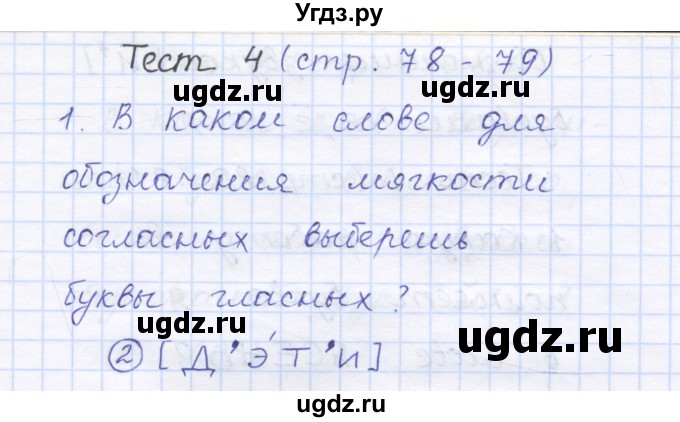 Угдз.ру
Тест 4 (стр. 78 - 79)
ugdz.ru ugdz.ru
1. В каком слове для
обозначения мягкости
ugdz.ru ugdz.ru
согласных выберешь
буквы гласных?
ugdz.ru ugdz.ru
2 [Д'э́Т'и]
ugdz.ru